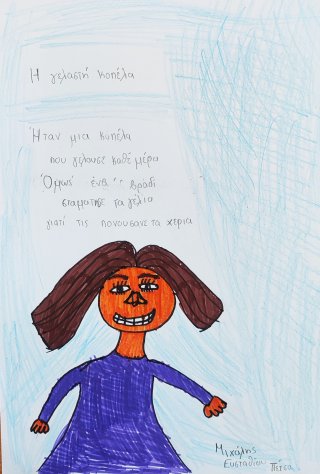 Η γελαστή κοπέλα
Ήταν μια κοπέλα
που γελουσε καθε μέρα
Όμως ένα βραδι
σταματησε τα γέλια
γιατί της πονουσανε τα χερια
Μιχάλης
Ευσταθίου Πέτσα